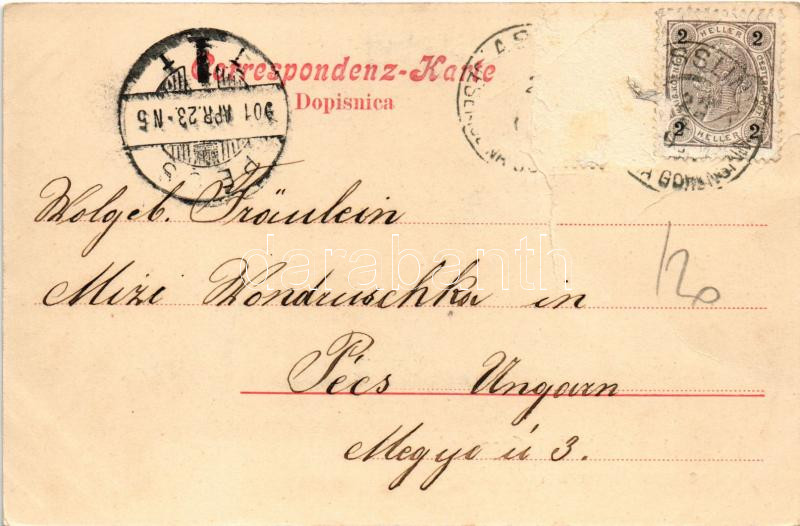 Correspondenz-Karte
Dopisnica
901 APR. 23. N5
PÉCS
2 HELLER 2
2 HELLER 2
Wolgeb. Fräulein
Mizi Wondruschka in
Pécs Ungarn
Megye ú 3.
120
darabanth